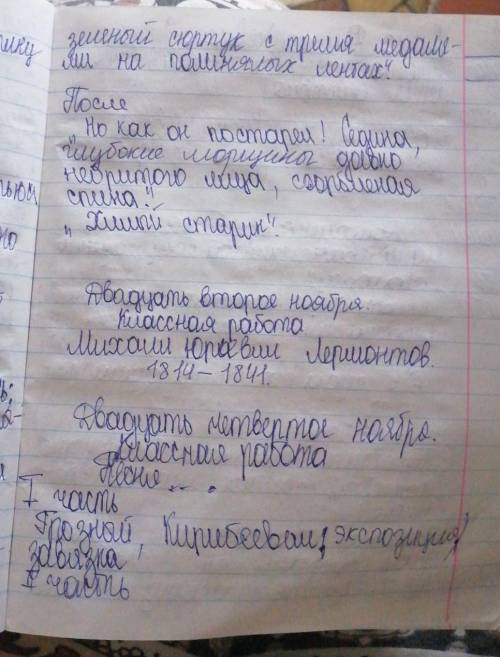 зеленый сюртук с тремя медаля-
ми на полинялых лентах".
После
"Но как он постарел! Седина,
глубокие морщины давно
небритого лица, сгорбленая
спина".
"Хилый старик".
Двадцать второе ноября.
Классная работа
Михаил Юрьевич Лермонтов.
1814 – 1841.
Двадцать четвертое ноября.
Классная работа
Песня...
I часть
Грозный, Кирибеевич (экспозиция)
завязка
II часть